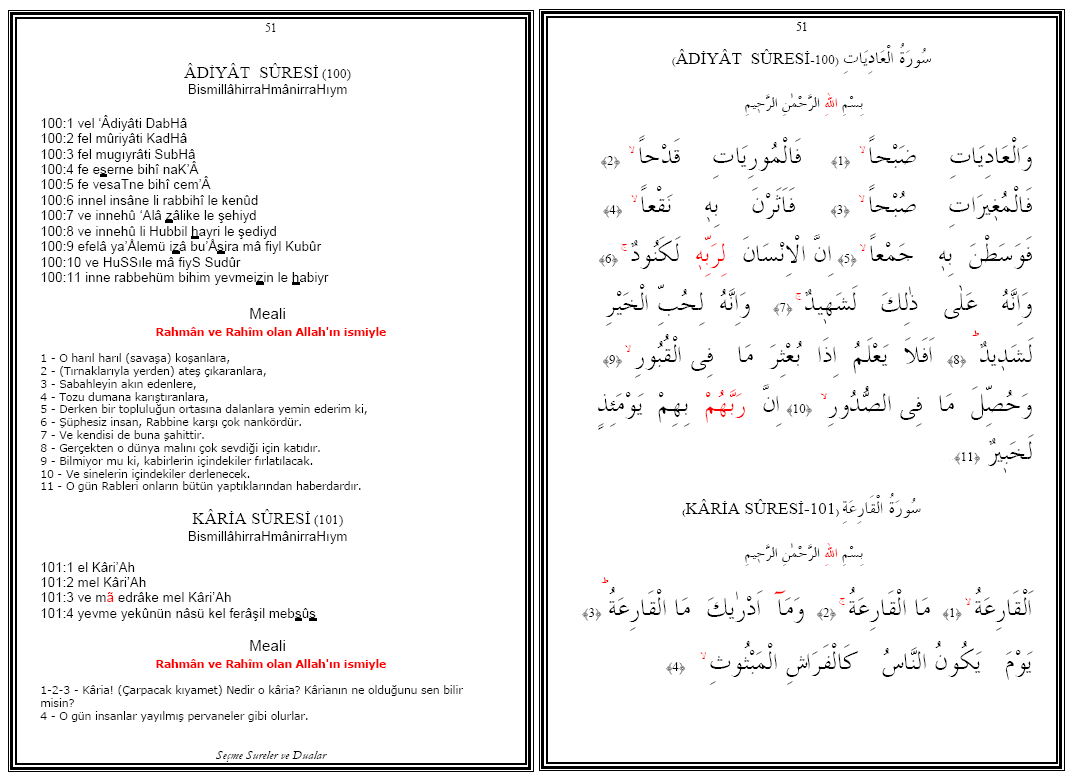 51
ÂDİYÂT SÛRESİ (100)
BismillâhirraHmânirraHıym
100:1 vel ‘Âdiyâti DabHâ
100:2 fel mûriyâti KadHâ
100:3 fel mugıyrâti SubHâ
100:4 fe eserne bihî naK’Â
100:5 fe vesaTne bihî cem’Â
100:6 innel insâne li rabbihî le kenûd
100:7 ve innehû ‘Alâ zâlike le şehiyd
100:8 ve innehû li Hubbil hayri le şediyd
100:9 efelâ ya’Âlemü izâ bu’Âsira mâ fiyl Kubûr
100:10 ve HuSSıle mâ fiyS Sudûr
100:11 inne rabbehüm bihim yevmeizin le habiyr
Meali
Rahmân ve Rahîm olan Allah'ın ismiyle
1 - O harıl harıl (savaşa) koşanlara,
2 - (Tırnaklarıyla yerden) ateş çıkaranlara,
3 - Sabahleyin akın edenlere,
4 - Tozu dumana karıştıranlara,
5 - Derken bir topluluğun ortasına dalanlara yemin ederim ki,
6 - Şüphesiz insan, Rabbine karşı çok nankördür.
7 - Ve kendisi de buna şahittir.
8 - Gerçekten o dünya malını çok sevdiği için katıdır.
9 - Bilmiyor mu ki, kabirlerin içindekiler fırlatılacak.
10 - Ve sinelerin içindekiler derlenecek.
11 - O gün Rableri onların bütün yaptıklarından haberdardır.
KÂRİA SÛRESİ (101)
BismillâhirraHmânirraHıym
101:1 el Kâri’Ah
101:2 mel Kâri’Ah
101:3 ve mã edrâke mel Kâri’Ah
101:4 yevme yekûnün nâsü kel ferâşil mebsûs
Meali
Rahmân ve Rahîm olan Allah'ın ismiyle
1-2-3 - Kâria! (Çarpacak kıyamet) Nedir o kâria? Kârianın ne olduğunu sen bilir
misin?
4 - O gün insanlar yayılmış pervaneler gibi olurlar.
Seçme Sureler ve Dualar
51
سُورَةُ الْعَادِيَاتِ (ÂDİYÂT SÛRESİ-100)
بِسْمِ اللّٰهِ الرَّحْمٰنِ الرَّحٖيمِ
وَالْعَادِيَاتِ ضَبْحاًۙ ﴿1﴾ فَالْمُورِيَاتِ قَدْحاًۙ ﴿2﴾
فَالْمُغٖيرَاتِ صُبْحاًۙ ﴿3﴾ فَاَثَرْنَ بِهٖ نَقْعاًۙ ﴿4﴾
فَوَسَطْنَ بِهٖ جَمْعاًۙ ﴿5﴾ اِنَّ الْاِنْسَانَ لِرَبِّهٖ لَكَنُودٌۚ ﴿6﴾
وَاِنَّهُ عَلٰى ذٰلِكَ لَشَهٖيدٌۚ ﴿7﴾ وَاِنَّهُ لِحُبِّ الْخَيْرِ
لَشَدٖيدٌؕ ﴿8﴾ اَفَلَا يَعْلَمُ اِذَا بُعْثِرَ مَا فِى الْقُبُورِۙ ﴿9﴾
وَحُصِّلَ مَا فِى الصُّدُورِۙ ﴿10﴾ اِنَّ رَبَّهُمْ بِهِمْ يَوْمَئِذٍ
لَخَبٖيرٌ ﴿11﴾
سُورَةُ الْقَارِعَةِ (KÂRİA SÛRESİ-101)
بِسْمِ اللّٰهِ الرَّحْمٰنِ الرَّحٖيمِ
اَلْقَارِعَةُۙ ﴿1﴾ مَا الْقَارِعَةُۚ ﴿2﴾ وَمَآ اَدْرٰيكَ مَا الْقَارِعَةُؕ ﴿3﴾
يَوْمَ يَكُونُ النَّاسُ كَالْفَرَاشِ الْمَبْثُوثِۙ ﴿4﴾